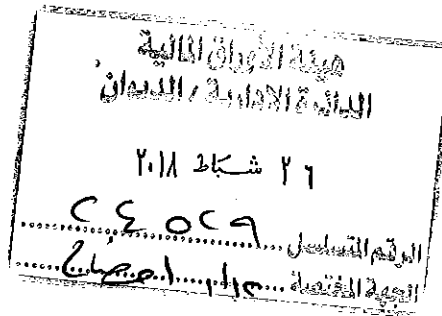 هيئة الأوراق المالية
الدائرة الادارية / الديوان
٢٦ شباط ٢٠١٨
الرقم المتسلسل ٢٤٥٢٩
الجهة المختصة